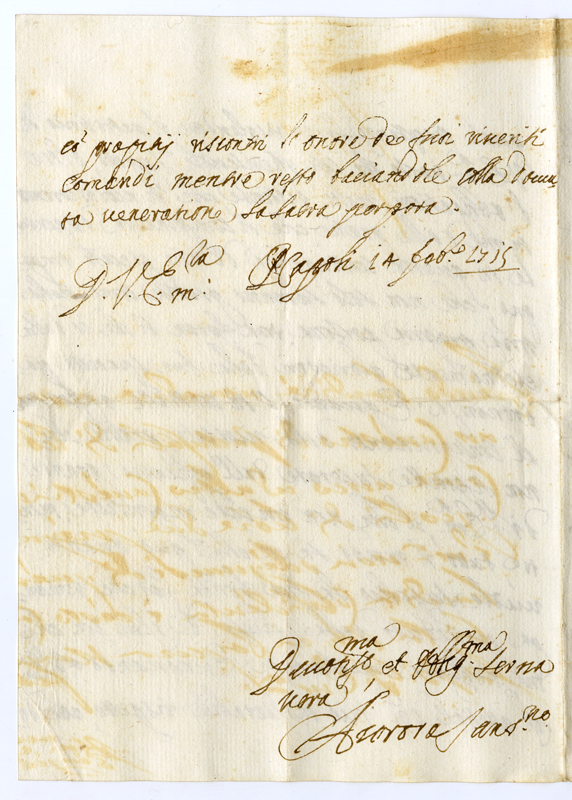 co' propitij riscontri l'onore de suoi riveriti
Comandi mentre resto baciandole colla dovu
ta veneratione la sacra porpora.
D. V. Em.za Napoli 14 Feb.o 1715
Devotis.ma et Oblig.ma Serva
vera
Aurora San